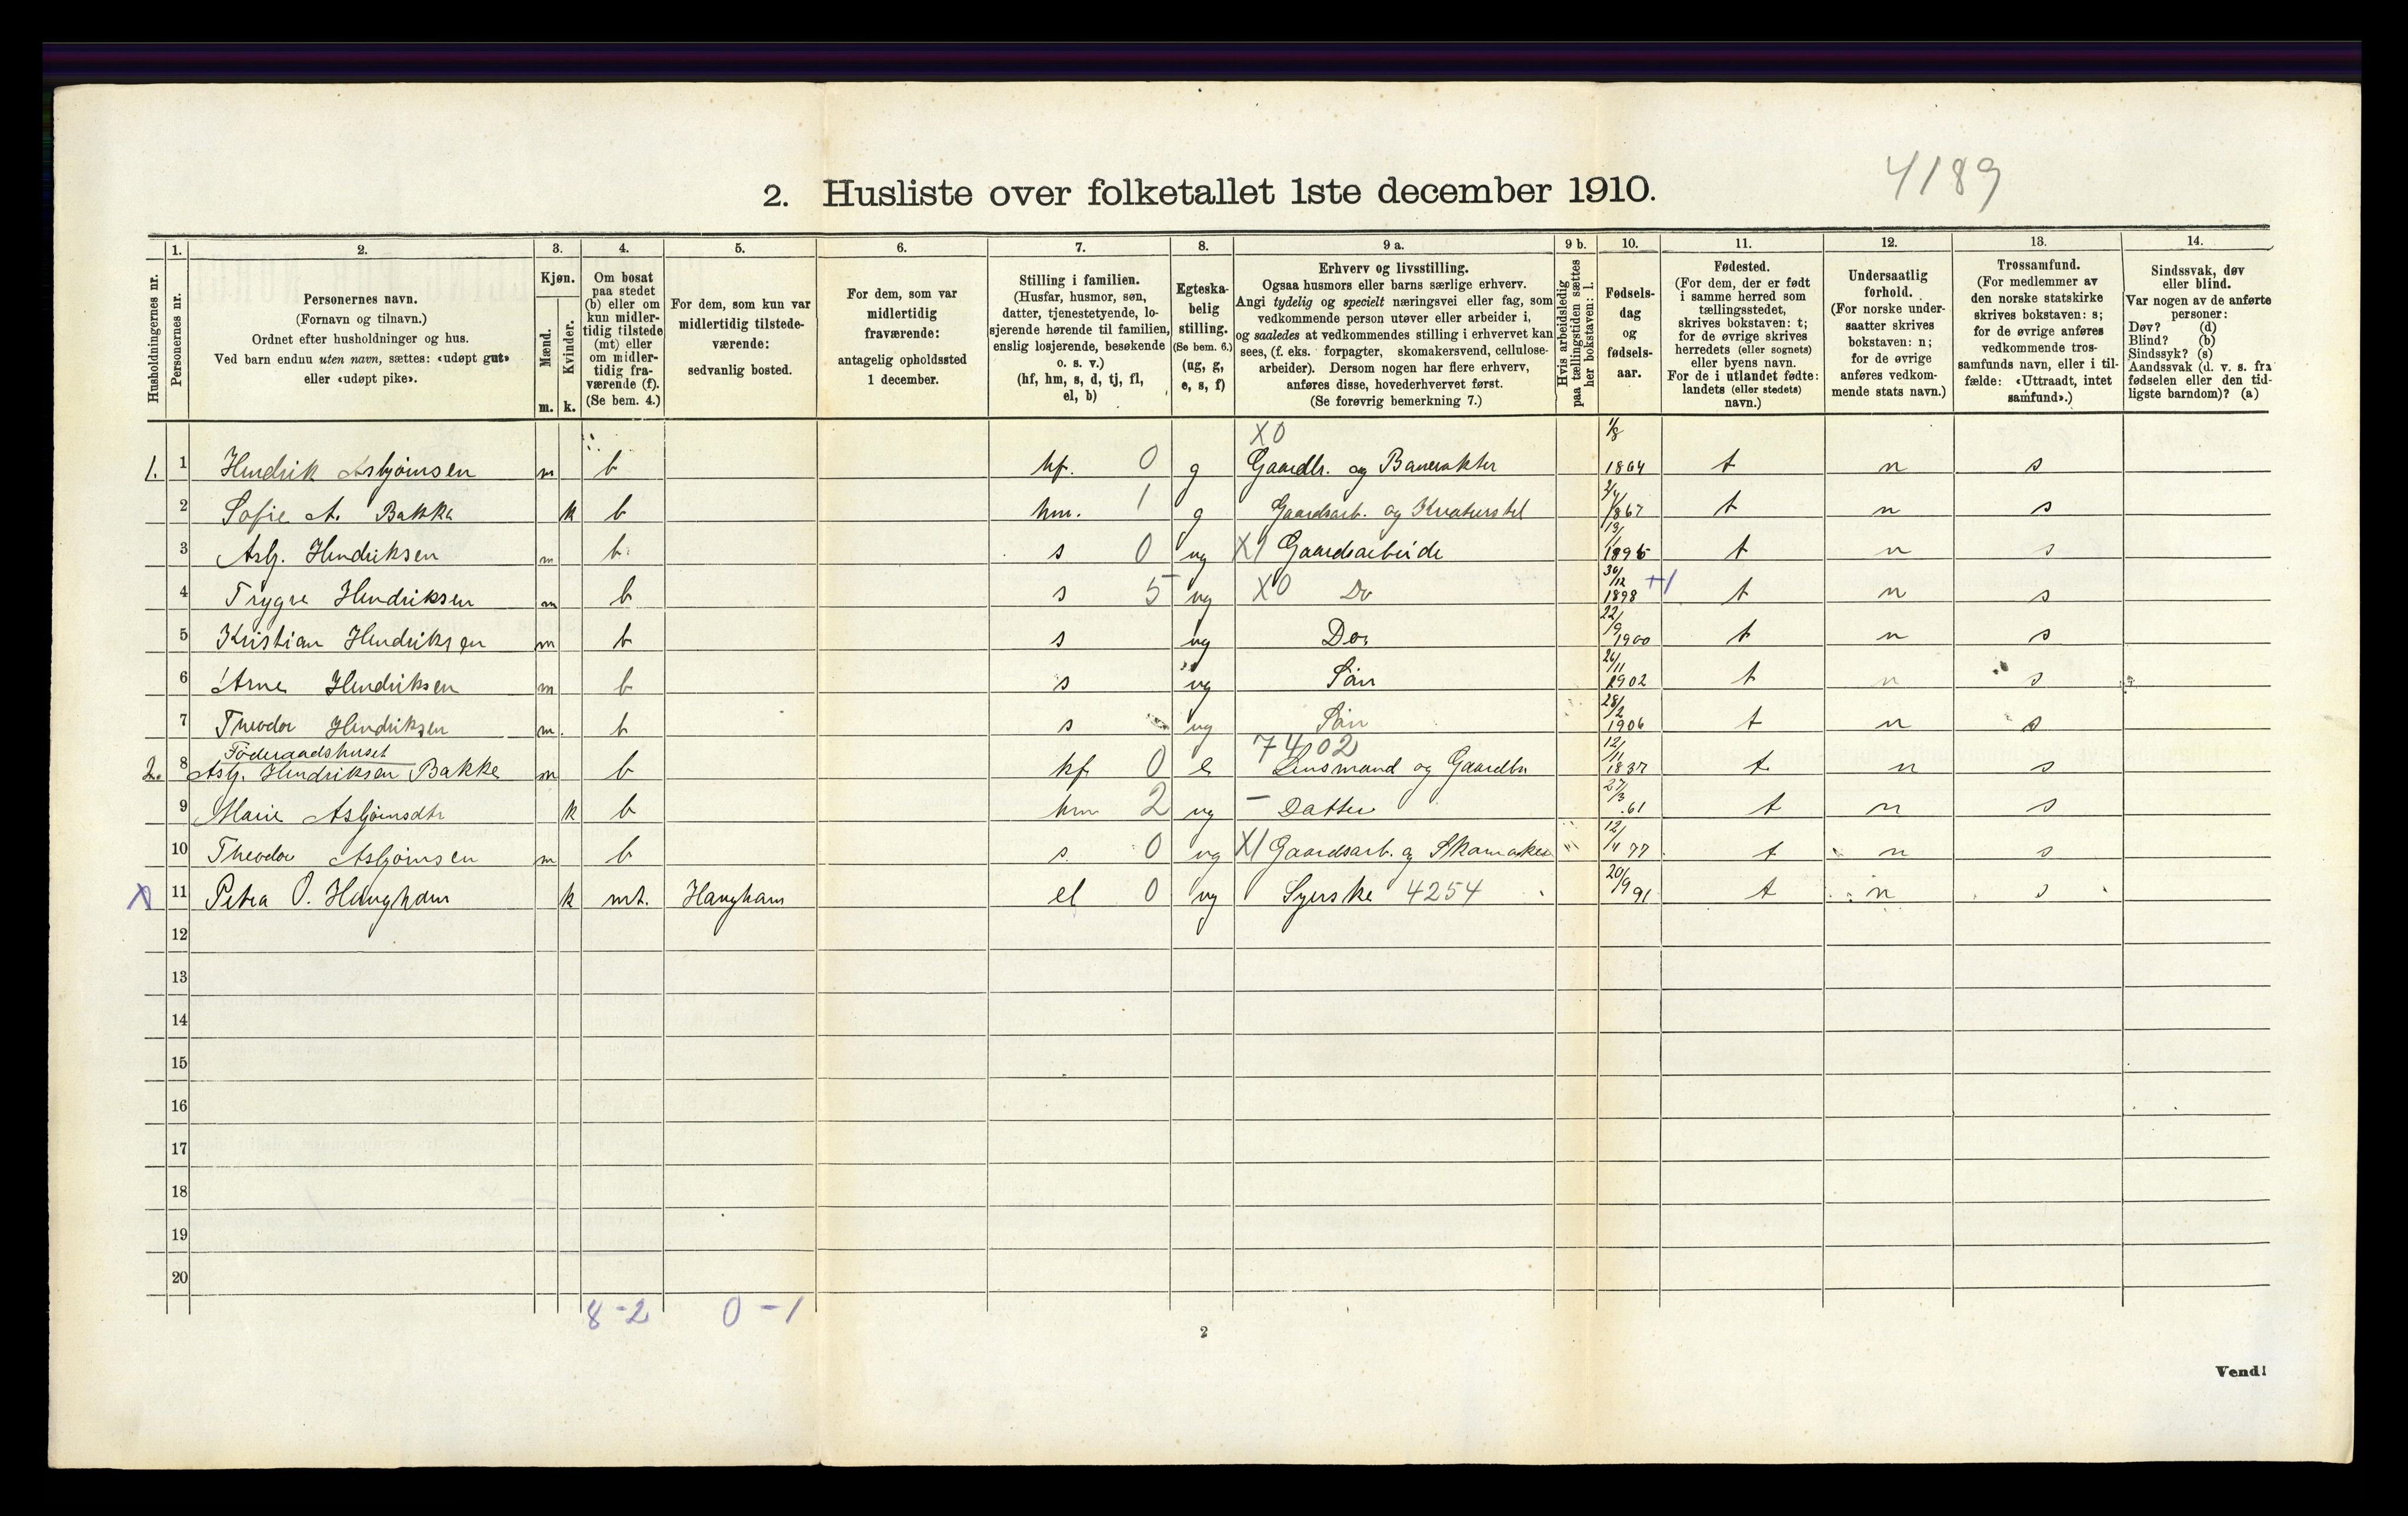 4189
2. Husliste over folketallet 1ste december 1910.
Husholdningernes nr.
1. Personernes nr.
2. Personernes navn.
(Fornavn og tilnavn.)
Ordnet efter husholdninger og hus.
Ved barn endnu uten navn, sættes: «udøpt gut»
eller «udøpt pike».
3. Kjøn.
Mænd. m.
Kvinder. k.
4. Om bosat
paa stedet
(b) eller om
kun midler-
tidig tilstede
(mt) eller
om midler-
tidig fra-
værende (f).
(Se bem. 4.)
5. For dem, som kun var
midlertidig tilstede-
værende:
sedvanlig bosted.
6. For dem, som var
midlertidig
fraværende:
antagelig opholdssted
1 december.
7. Stilling i familien.
(Husfar, husmor, søn,
datter, tjenestetyende, lo-
sjerende hørende til familien,
enslig losjerende, besøkende
o. s. v.)
(hf, hm, s, d, tj, fl,
el, b)
8. Egteska-
belig
stilling.
(Se bem. 6.)
(ug, g,
e, s, f)
9 a. Erhverv og livsstilling.
Ogsaa husmors eller barns særlige erhverv.
Angi tydelig og specielt næringsvei eller fag, som
vedkommende person utøver eller arbeider i,
og saaledes at vedkommendes stilling i erhvervet kan
sees, (f. eks. forpagter, skomakersvend, cellulose-
arbeider). Dersom nogen har flere erhverv,
anføres disse, hovederhvervet først.
(Se forøvrig bemerkning 7.)
9 b. Hvis arbeidsledig
paa tællingstiden sættes
her bokstaven: l.
10. Fødsels-
dag
og
fødsels-
aar.
11. Fødested.
(For dem, der er født
i samme herred som
tællingsstedet,
skrives bokstaven: t;
for de øvrige skrives
herredets (eller sognets)
eller byens navn.
For de i utlandet fødte:
landets (eller stedets)
navn.)
12. Undersaatlig
forhold.
(For norske under-
saatter skrives
bokstaven: n;
for de øvrige
anføres vedkom-
mende stats navn.)
13. Trossamfund.
(For medlemmer av
den norske statskirke
skrives bokstaven: s;
for de øvrige anføres
vedkommende tros-
samfunds navn, eller i til-
fælde: «Uttraadt, intet
samfund».)
14. Sindssvak, døv
eller blind.
Var nogen av de anførte
personer:
Døv? (d)
Blind? (b)
Sindssyk? (s)
Aandssvak (d. v. s. fra
fødselen eller den tid-
ligste barndom)? (a)
X0
1. 1 Hendrik Asbjørnsen m b hf. 0 g Gaardbr. og Banevakter 1/8 1864 t n s
2 Sofie A. Bakke k b hm. 1 g Gaardsarb. og Kreaturstel 2/4 1867 t n s
3 Asbj. Hendriksen m b s 0 ug X1 Gaardsarbeide 13/1 1895 t n s
4 Trygve Hendriksen m b s 5 ug X0 Do 30/12 1898 +1 t n s
5 Kristian Hendriksen m b s ug Do, 22/9 1900 t n s
6 Arne Hendriksen m b s ug Søn 26/11 1902 t n s
7 Theodor Hendriksen m. b s ug Søn 28/2 1906 t n s
Föderaadshuset 7402
2. 8 Asbj. Hendriksen Bakke m b hf 0 e Lensmand og Gaardbr 12/11 1837 t n s
9 Marie Asbjørnsdtr k b hm 2 ug – Datter 27/3 .61 t n s
10 Theodor Asbjørnsen m b s. 0 ug X1 Gaardsarb. og Skomaker 12/4 77 t n s
X 11 Petra O. Haugham k mt. Haugham el 0 ug Syerske 4254 20/9 91 t n s
12
13
14
15
16
17
18
19
20
8 - 2 0 - 1
2
Vend!